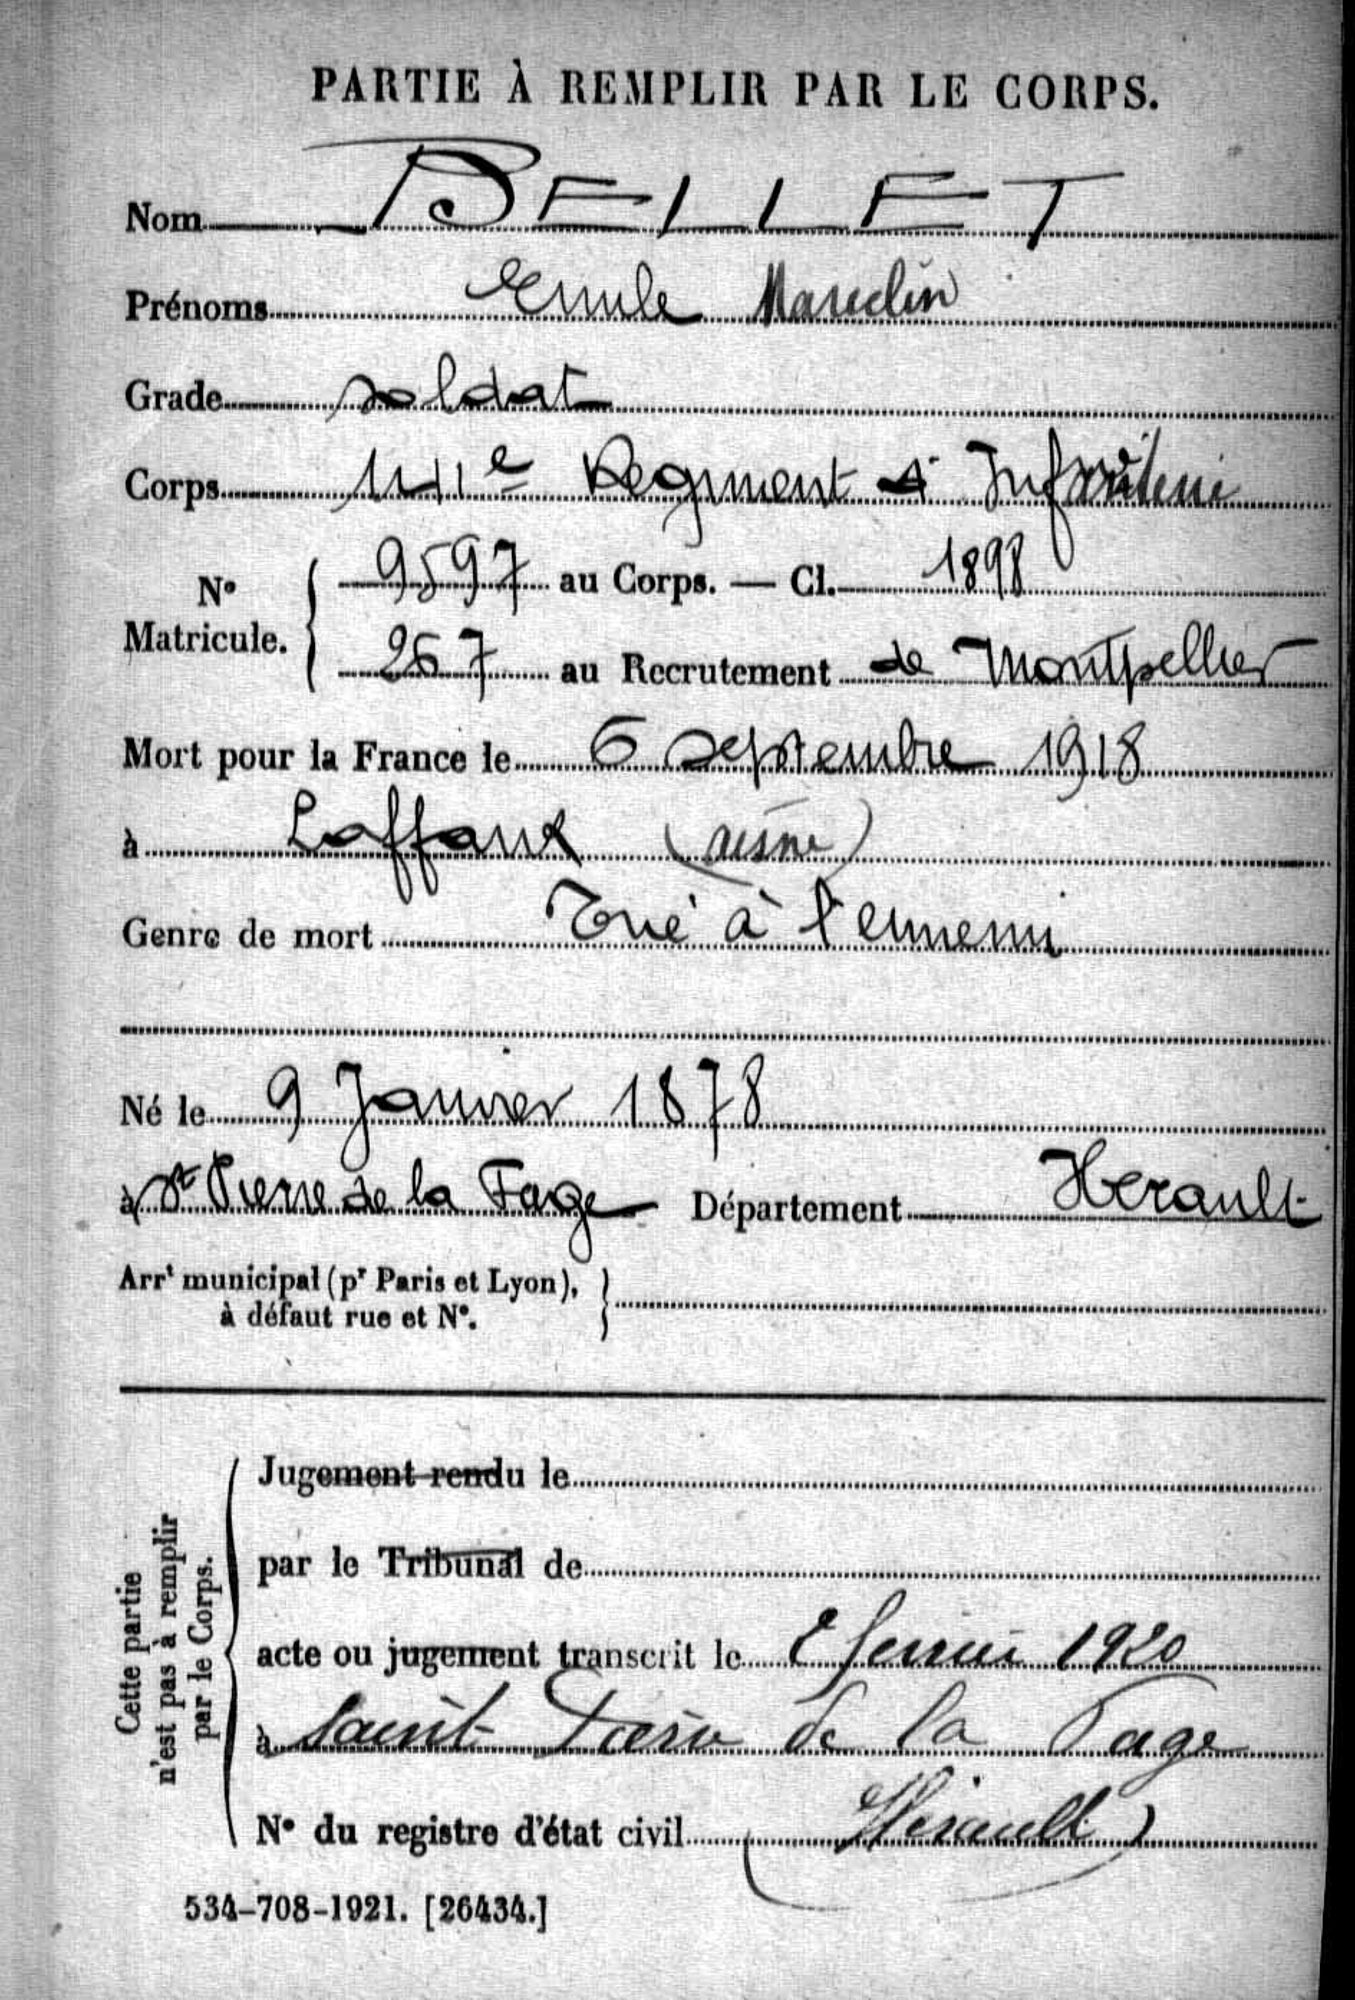 PARTIE À REMPLIR PAR LE CORPS.
Nom BELLET
Prénoms Emile Marcelin
Grade soldat
Corps 141e Regiment d' Infanterie
N° Matricule. { 9597 au Corps. — Cl. 1898
267 au Recrutement de Montpellier
Mort pour la France le 6 septembre 1918
à Laffaux (Aisne)
Genre de mort Tué à l'ennemi
Né le 9 Janvier 1878
à St Pierre de la Fage Département Herault
Arrt municipal (pr Paris et Lyon), à défaut rue et N°. }
Cette partie n'est pas à remplir par le Corps.
Jugement rendu le
par le Tribunal de
acte ou jugement transcrit le fevrier 1920
à Saint Pierre de la Fage
N° du registre d'état civil (Hérault)
534-708-1921. [26434.]